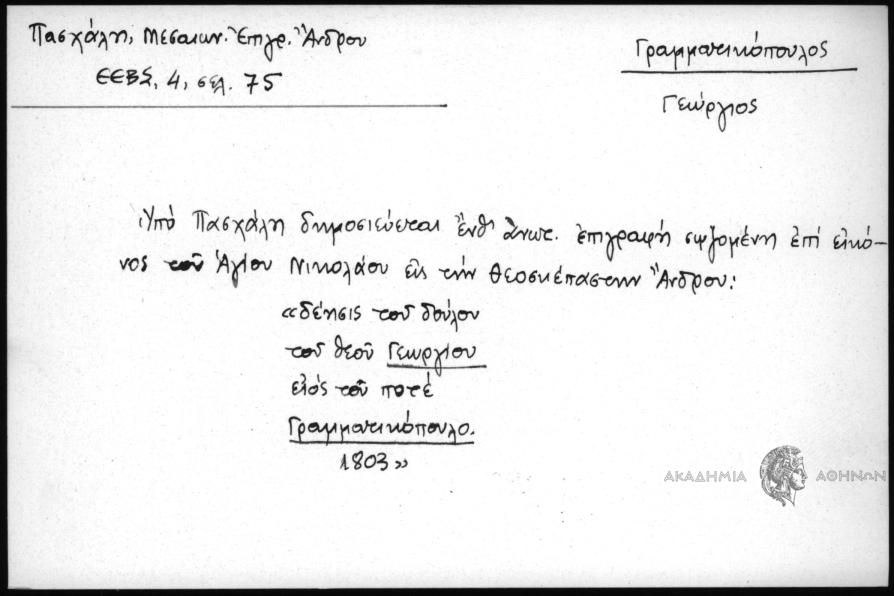 Πασχάλη, Μεσαιων. Ἐπιγρ. Ἄνδρου
ΕΕΒΣ, 4, σελ. 75
Γραμματικόπουλος
Γεώργιος
Ὑπό Πασχάλη δημοσιεύεται ἔνθ' ἀνωτ. ἐπιγραφή σῳζομένη ἐπί εἰκό-
νος τοῦ Ἁγίου Νικολάου εἰς τήν Θεοσκέπαστην Ἄνδρου:
«δέησις τοῦ δούλου
τοῦ θεοῦ Γεωργίου
εἱός τοῦ ποτέ
Γραμματικόπουλο.
1803»
ΑΚΑΔΗΜΙΑ ΑΘΗΝΩΝ